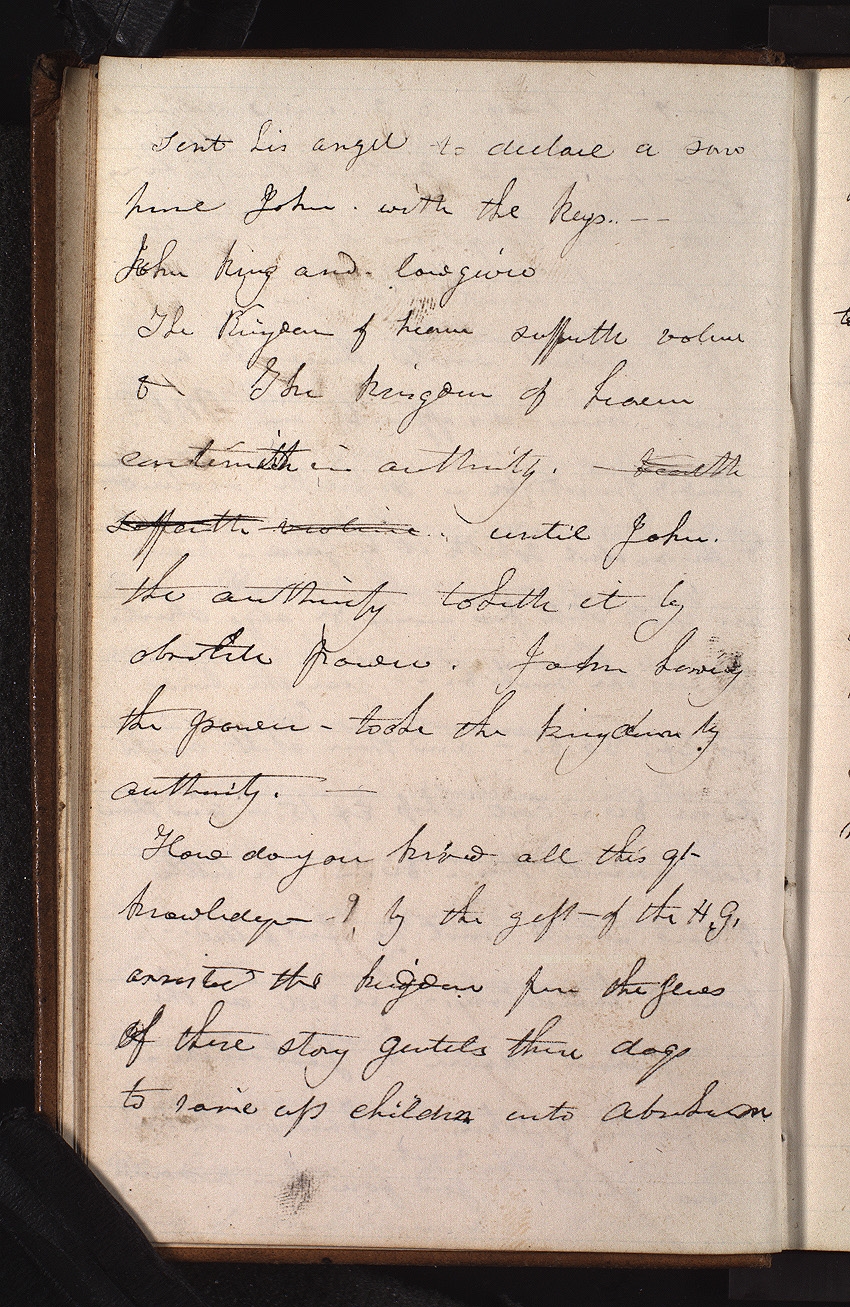 sent his angel to declare a son
hine John. with the keys. --
John king and. lawgiver
The Kingdom of heavn suffreth volunc
& The kingdom of heavn
continueth in authority. — suffreth
suffreth violinc. until John.
the authority taketh it by
absolute power. John having
the power - took the kingdom by
authority. —
How do you have all this gt
knowledge - ? by the gift of the H.G.
arrested the kigdom from the jews
Of these stony gentels these dogs
to raise up children unto Abraham